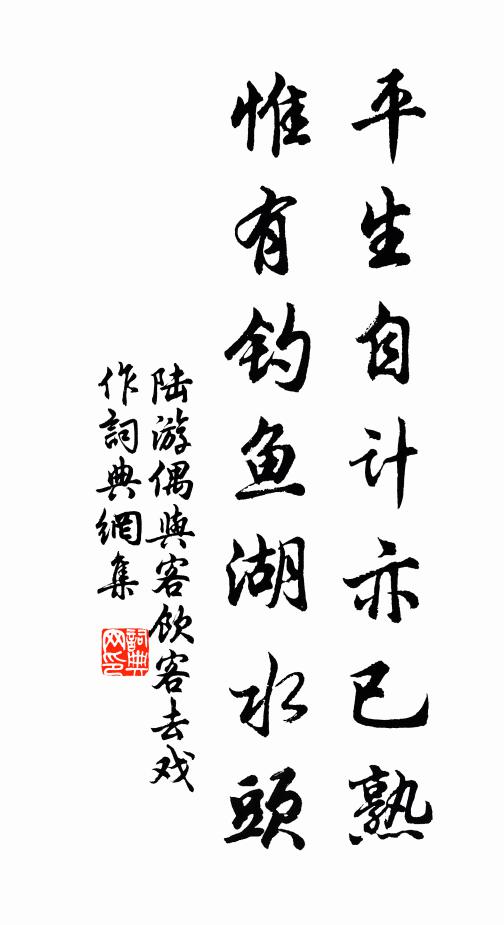 平生自计亦已熟
惟有钓鱼湖水頭
陆游偶與客饮客去戏
作詞典網集
詞典网印